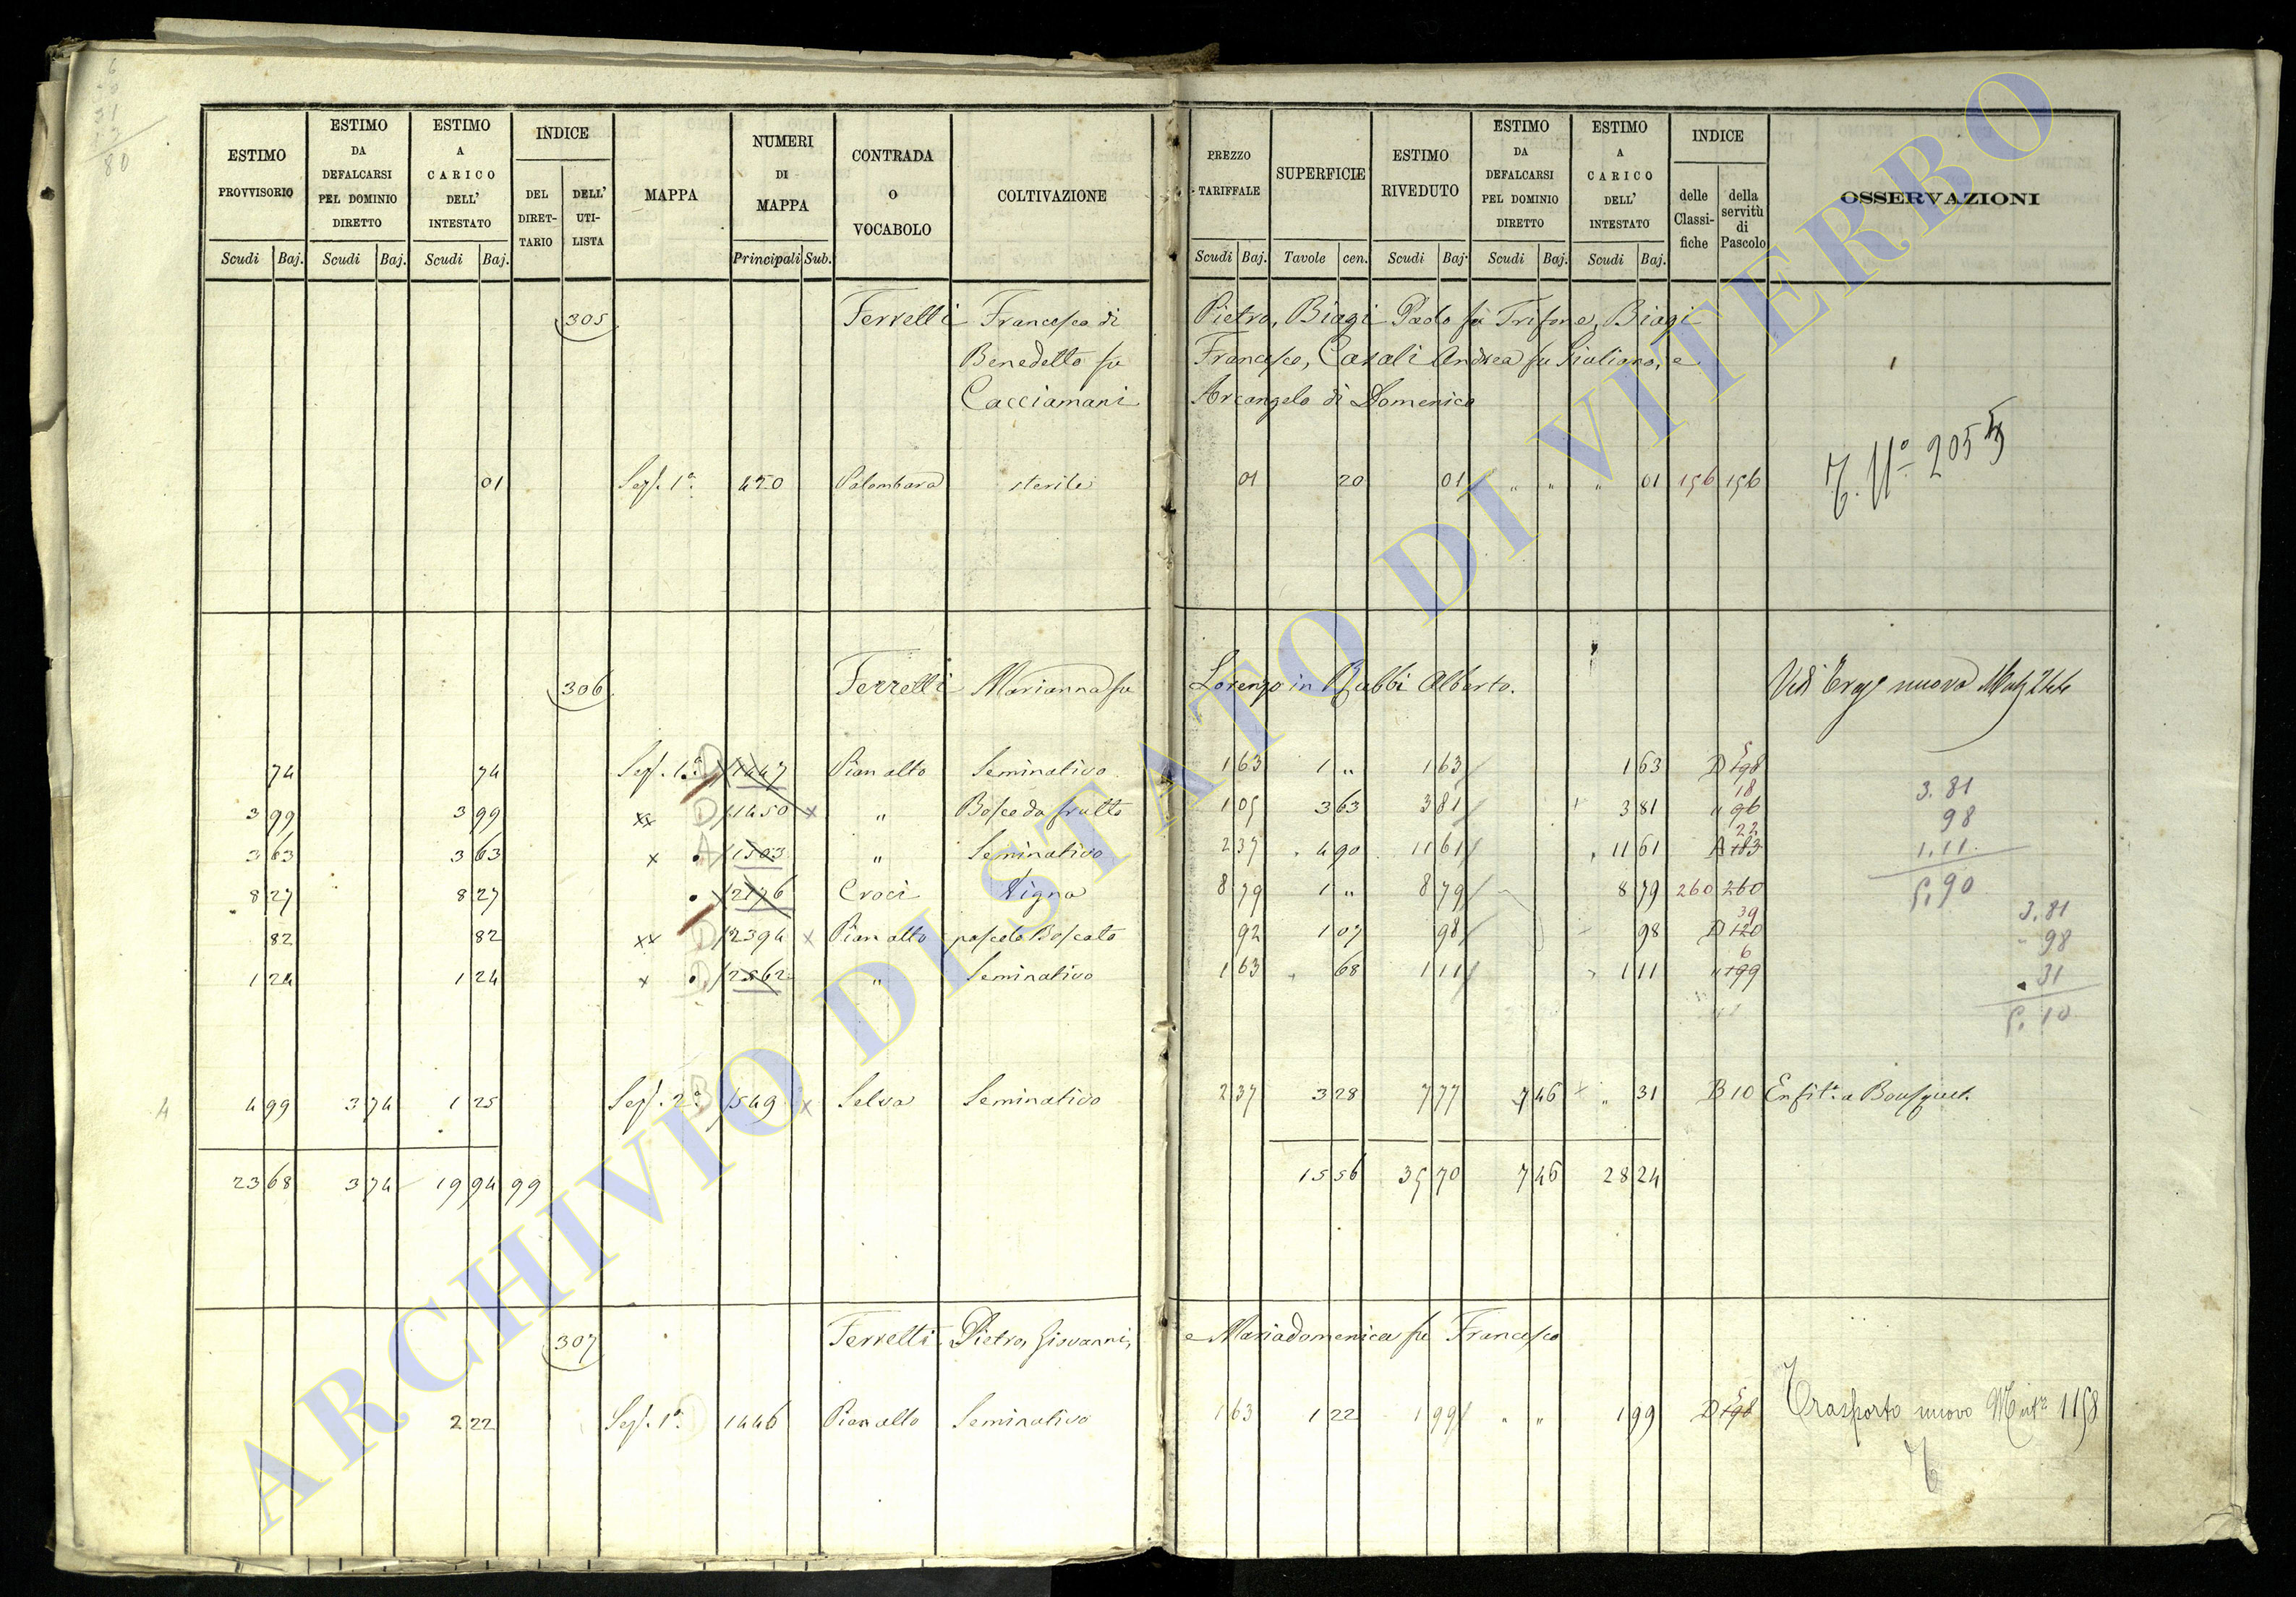 ESTIMO PROVVISORIO | ESTIMO DA DEFALCARSI PEL DOMINIO DIRETTO | ESTIMO A CARICO DELL' INTESTATO | INDICE | MAPPA | NUMERI DI MAPPA | CONTRADA O VOCABOLO | COLTIVAZIONE | PREZZO TARIFFALE | SUPERFICIE | ESTIMO RIVEDUTO | ESTIMO DA DEFALCARSI PEL DOMINIO DIRETTO | ESTIMO A CARICO DELL' INTESTATO | INDICE | OSSERVAZIONI
DEL DIRET-TARIO | DELL' UTI-LISTA | delle Classi-fiche | della servitù di Pascolo
Scudi | Baj. | Scudi | Baj. | Scudi | Baj. | Principali | Sub. | Scudi | Baj. | Tavole | cen. | Scudi | Baj. | Scudi | Baj. | Scudi | Baj.
305 Ferrelli Francesco di Pietro, Biagi Paolo fu Trifone, Biagi
Benedetto fu Francesco, Casali Andrea fu Giuliano, e
Cacciamani Arcangelo di Domenico
01 Sez. 1ª 420 Palombara sterile 01 20 01 " " " 01 156 156
306 Ferrelli Marianna fu Lorenzo in Babbi Alberto. Vedi nuova
74 74 Sez. 1ª D 1447 Pian alto Seminativo 1 63 1 " 1 63 1 63 D 198 5
3 99 3 99 xx D 1450 x " Bosco da frutto 1 05 3 63 3 81 3 81 " 96 18
3 63 3 63 x A 1503 " Seminativo 2 37 4 90 11 61 11 61 A 183 22
8 27 8 27 2176 Croci Vigna 8 79 1 " 8 79 8 79 260 260
82 82 xx D 2394 x Pian alto pascolo Boscato 92 1 07 98 98 D 120 39
1 24 1 24 x D 2862 " Seminativo 1 63 68 1 11 1 11 " 199 6
3.81
98
1.11
5.90
3.81
98
31
5.10
4 4 99 3 74 1 25 Sez. 2ª B 549 x Selva Seminativo 2 37 3 28 7 77 7 46 " 31 B 10 Enfit. a Bousquet.
23 68 3 74 19 94 99 15 56 35 70 7 46 28 24
307 Ferrelli Pietro, Giovanni, e Mariadomenica fu Francesco
2 22 Sez. 1ª 1446 Pian alto Seminativo 1 63 1 22 1 99 " " 1 99 D 198 5 Trasporto nuovo 1158
ARCHIVIO DI STATO DI VITERBO